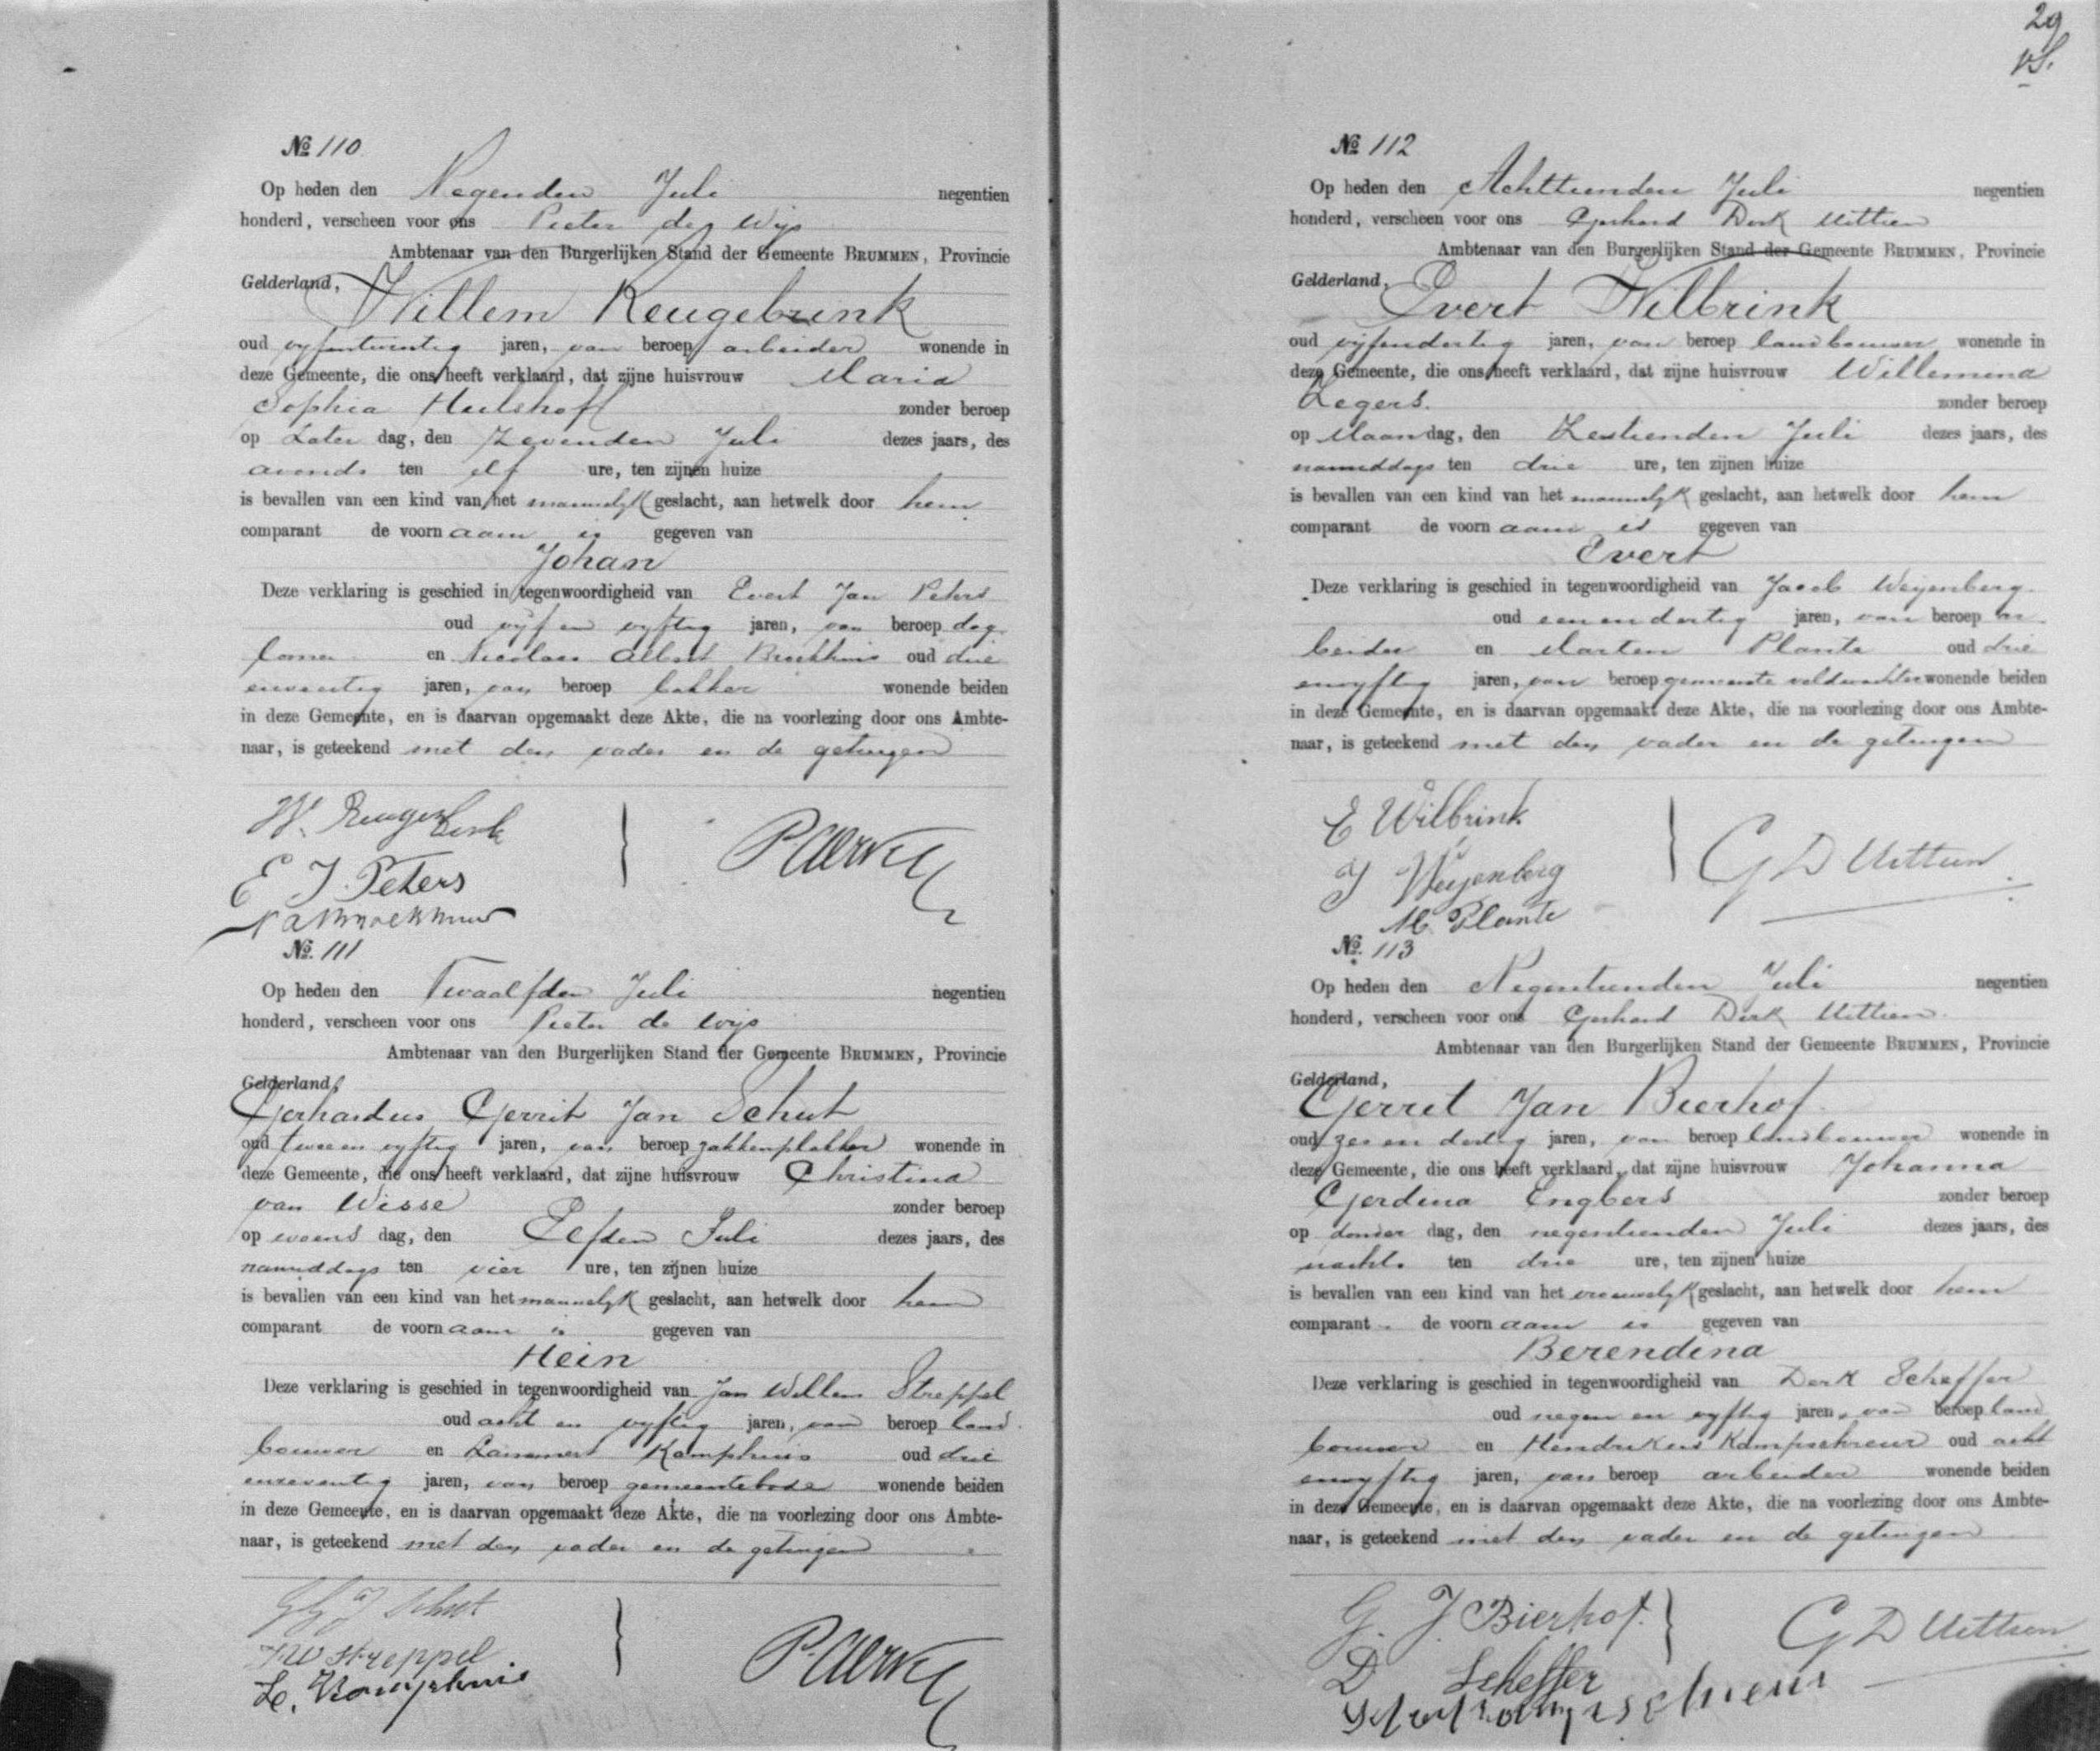 № 110
Op heden den Negenden Juli negentien
honderd, verscheen voor ons Pieter de Wijs
Ambtenaar van den Burgerlijken Stand der Gemeente BRUMMEN, Provincie
Gelderland,
Willem Reugebrink
oud vyfentwintig jaren, van beroep arbeider wonende in
deze Gemeente, die ons heeft verklaard, dat zijne huisvrouw Maria
Sophia Hulshoff zonder beroep
op Zater dag, den Zevenden Juli dezes jaars, des
avonds ten elf ure, ten zijnen huize
is bevallen van een kind van het mannelyk geslacht, aan hetwelk door hem
comparant de voornaam is gegeven van
Johan
Deze verklaring is geschied in tegenwoordigheid van Evert Jan Peters
oud vyf en vyftig jaren, van beroep dag
looner en Nicolaas Albert Broekhuis oud drie
jaren, van beroep bakker wonende beiden
in deze Gemeente, en is daarvan opgemaakt deze Akte, die na voorlezing door ons Ambte-
naar, is geteekend met den vader en de getuigen
W. Reugebrink
E J. Peters
N A Broekhuis
№ 111
Op heden den Twaalfden Juli negentien
honderd, verscheen voor ons Pieter de Wijs
Ambtenaar van den Burgerlijken Stand der Gemeente BRUMMEN, Provincie
Gelderland,
Gerhardus Gerrit Jan Schut
oud twee en vyftig jaren, van beroep zakkenplakker wonende in
deze Gemeente, die ons heeft verklaard, dat zijne huisvrouw Christina
van Wisse zonder beroep
op woens dag, den Elfden Juli dezes jaars, des
namiddags ten vier ure, ten zijnen huize
is bevallen van een kind van het mannelyk geslacht, aan hetwelk door hem
comparant de voornaam is gegeven van
Hein
Deze verklaring is geschied in tegenwoordigheid van Jan Willem Streppel
oud acht en vyftig jaren, van beroep land
bouwer en Lammert Kamphuis oud drie
enzeventig jaren, van beroep gemeentebode wonende beiden
in deze Gemeente, en is daarvan opgemaakt deze Akte, die na voorlezing door ons Ambte-
naar, is geteekend met den vader en de getuigen
G G J Schut
J W Streppel
L. Kamphuis
29
№ 112
Op heden den Achttienden Juli negentien
honderd, verscheen voor ons Gerhard Derk Uittien
Ambtenaar van den Burgerlijken Stand der Gemeente BRUMMEN, Provincie
Gelderland,
Evert Wilbrink
oud vyfendertig jaren, van beroep landbouwer wonende in
deze Gemeente, die ons heeft verklaard, dat zijne huisvrouw Willemina
Zegers. zonder beroep
op Maandag, den Zestienden Juli dezes jaars, des
namiddags ten drie ure, ten zijnen huize
is bevallen van een kind van het mannelyk geslacht, aan hetwelk door hem
comparant de voornaam is gegeven van
Evert
Deze verklaring is geschied in tegenwoordigheid van Jacob Weyenberg
oud eenendertig jaren, van beroep ar
beider en Marten Plante oud drie
envyftig jaren, van beroep gemeente veldwachter wonende beiden
in deze Gemeente, en is daarvan opgemaakt deze Akte, die na voorlezing door ons Ambte-
naar, is geteekend met den vader en de getuigen
E Wilbrink
J Weyenberg
M. Plante
G D Uittien
№ 113
Op heden den Negentienden Juli negentien
honderd, verscheen voor ons Gerhard Derk Uittien
Ambtenaar van den Burgerlijken Stand der Gemeente BRUMMEN, Provincie
Gelderland,
Gerret Jan Bierhof
oud zes en dertig jaren, van beroep landbouwer wonende in
deze Gemeente, die ons heeft verklaard, dat zijne huisvrouw Johanna
Gerdina Engbers zonder beroep
op donder dag, den negentienden Juli dezes jaars, des
nachts ten drie ure, ten zijnen huize
is bevallen van een kind van het vrouwelyk geslacht, aan hetwelk door hem
comparant de voornaam is gegeven van
Berendina
Deze verklaring is geschied in tegenwoordigheid van Derk Scheffer
oud negen en vyftig jaren, van beroep land
bouwer en Hendrikus Kampschreur oud acht
envyftig jaren, van beroep arbeider wonende beiden
in deze Gemeente, en is daarvan opgemaakt deze Akte, die na voorlezing door ons Ambte-
naar, is geteekend met den vader en de getuigen
G. J. Bierhof.
D Scheffer
G D Uittien